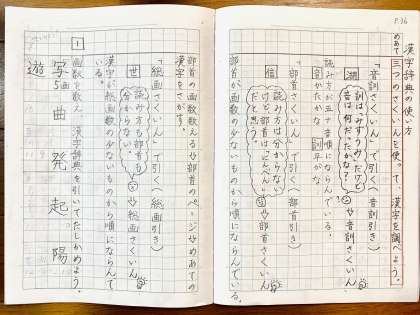 P.36
漢字辞典の使い方
めあて 三つのさくいんを使って、漢字を調べよう。
湖 訓は「みずうみ」だけど音は、何だったかな? ⇨音訓さくいん
「音訓さくいん」で引く(音訓引き)
読み方が五十音順にならんでいる。
音がかたかな 訓平がな
信 読み方は分からないけど、部首は「にんべん」だと思う。 ⇨部首さくいん
「部首さくいん」で引く(部首引き)
部首が、画数の少ないものから順にならんでいる。
部首の画数を数える⇨部首のページ⇨めあての漢字をさがす。
世 読み方も部首も分からない。 ⇨総画さくいん
「総画さくいん」で引く(総画引き)
漢字が、総画数の少ないものから順にならんでいる。
1 画数を数え、漢字辞典を引いてたしかめよう。
写 曲 発 起 陽
5画
遊